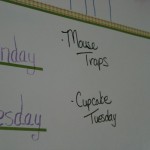 nday
- Mouse
Traps
esday
- Cupcake
Tuesday